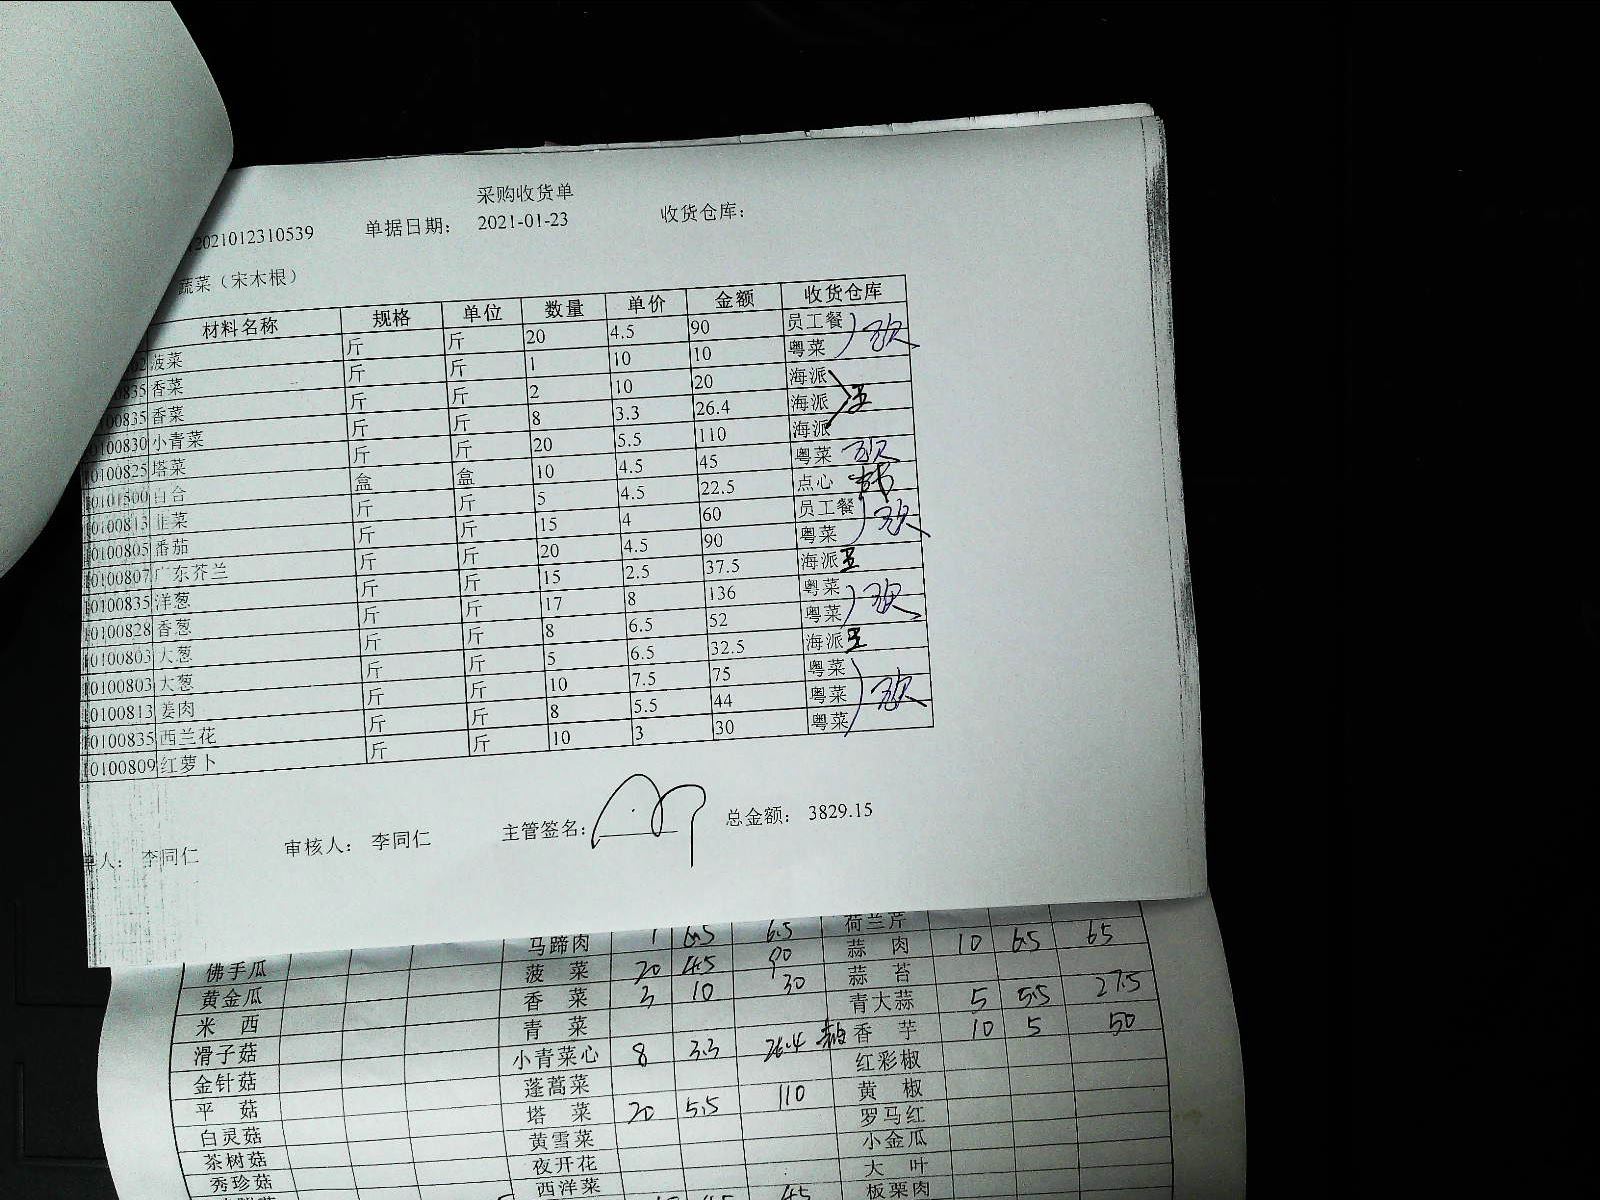 采购收货单
2021012310539 单据日期： 2021-01-23 收货仓库：
蔬菜（宋木根）
材料名称 规格 单位 数量 单价 金额 收货仓库
菠菜 斤 斤 20 4.5 90 员工餐
0835 香菜 斤 斤 1 10 10 粤菜
0100835 香菜 斤 斤 2 10 20 海派 王
0100830 小青菜 斤 斤 8 3.3 26.4 海派
0100825 塔菜 斤 斤 20 5.5 110 海派
0101500 百合 盒 盒 10 4.5 45 粤菜
0100813 韭菜 斤 斤 5 4.5 22.5 点心
0100805 番茄 斤 斤 15 4 60 员工餐
0100807 广东芥兰 斤 斤 20 4.5 90 粤菜
0100835 洋葱 斤 斤 15 2.5 37.5 海派 王
0100828 香葱 斤 斤 17 8 136 粤菜
0100803 大葱 斤 斤 8 6.5 52 粤菜
0100803 大葱 斤 斤 5 6.5 32.5 海派 王
0100813 姜肉 斤 斤 10 7.5 75 粤菜
0100835 西兰花 斤 斤 8 5.5 44 粤菜
0100809 红萝卜 斤 斤 10 3 30 粤菜
单人： 李同仁 审核人： 李同仁 主管签名： 总金额： 3829.15
马蹄肉 1 6.5 6.5 荷兰芹
佛手瓜 菠菜 20 4.5 90 蒜肉 10 6.5 65
黄金瓜 香菜 3 10 30 蒜苔
米西 青菜 青大蒜 5 5.5 27.5
滑子菇 小青菜心 8 3.3 26.4 香芋 10 5 50
金针菇 蓬蒿菜 红彩椒
平菇 塔菜 20 5.5 110 黄椒
白灵菇 黄雪菜 罗马红
茶树菇 夜开花 小金瓜
秀珍菇 西洋菜 大叶
板栗肉